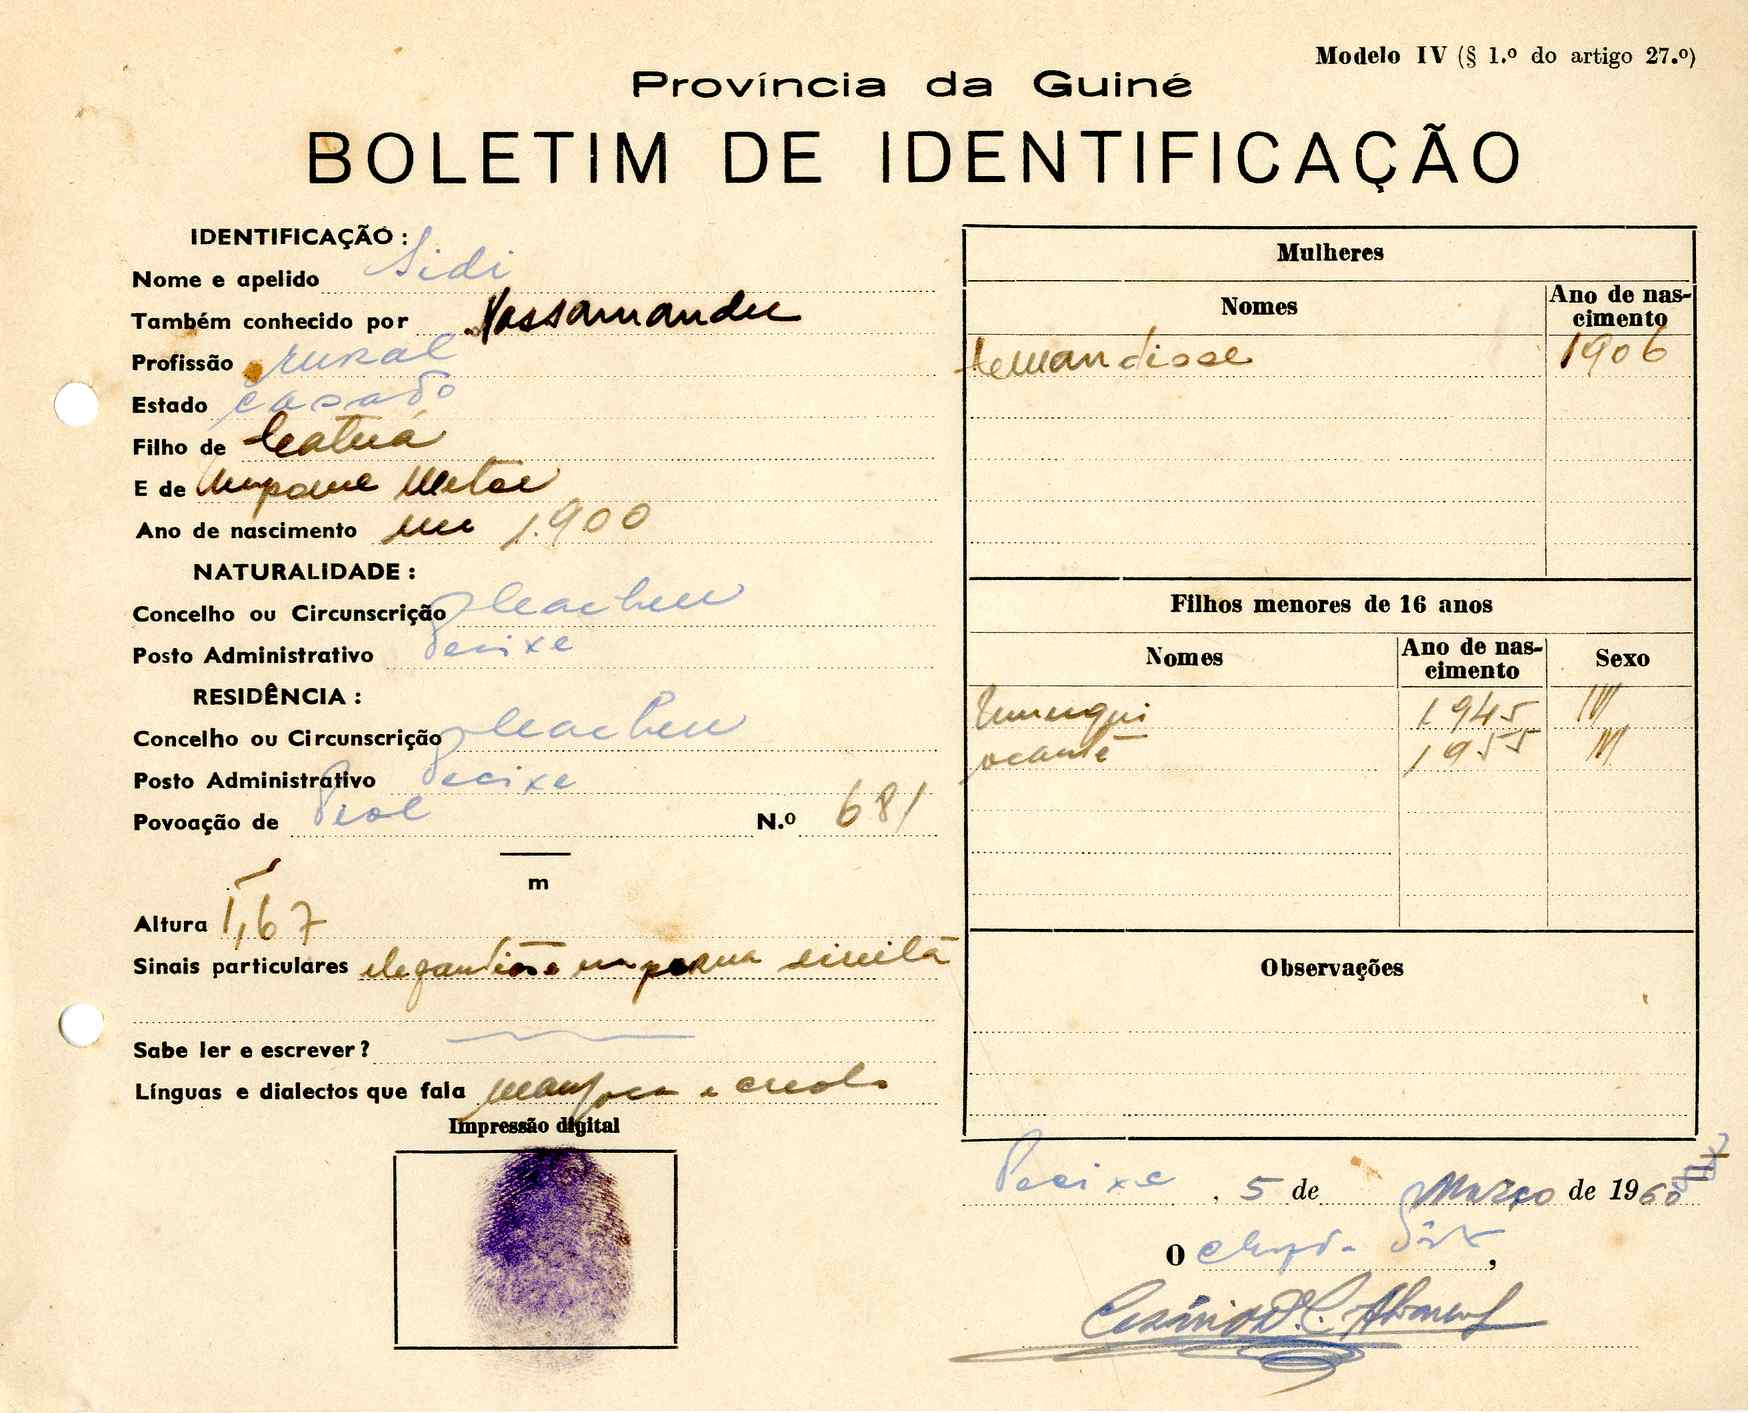 Modelo IV (§ 1.º do artigo 27.º)
Província da Guiné
BOLETIM DE IDENTIFICAÇÃO
IDENTIFICAÇÃO :
Nome e apelido Sidi
Também conhecido por Nassamandu
Profissão rural
Estado casado
Filho de Catuá
E de
Ano de nascimento em 1.900
NATURALIDADE :
Concelho ou Circunscrição Cacheu
Posto Administrativo Pecixe
RESIDÊNCIA :
Concelho ou Circunscrição Cacheu
Posto Administrativo Pecixe
Povoação de N.º 681
m
Altura 1,67
Sinais particulares perna direita
Sabe ler e escrever?
Línguas e dialectos que fala manjaca e creolo
Impressão digital
Mulheres
Nomes
Ano de nascimento
1906
Filhos menores de 16 anos
Nomes
Ano de nascimento
Sexo
1945 M
1955 M
Observações
Pecixe, 5 de Março de 1960
O